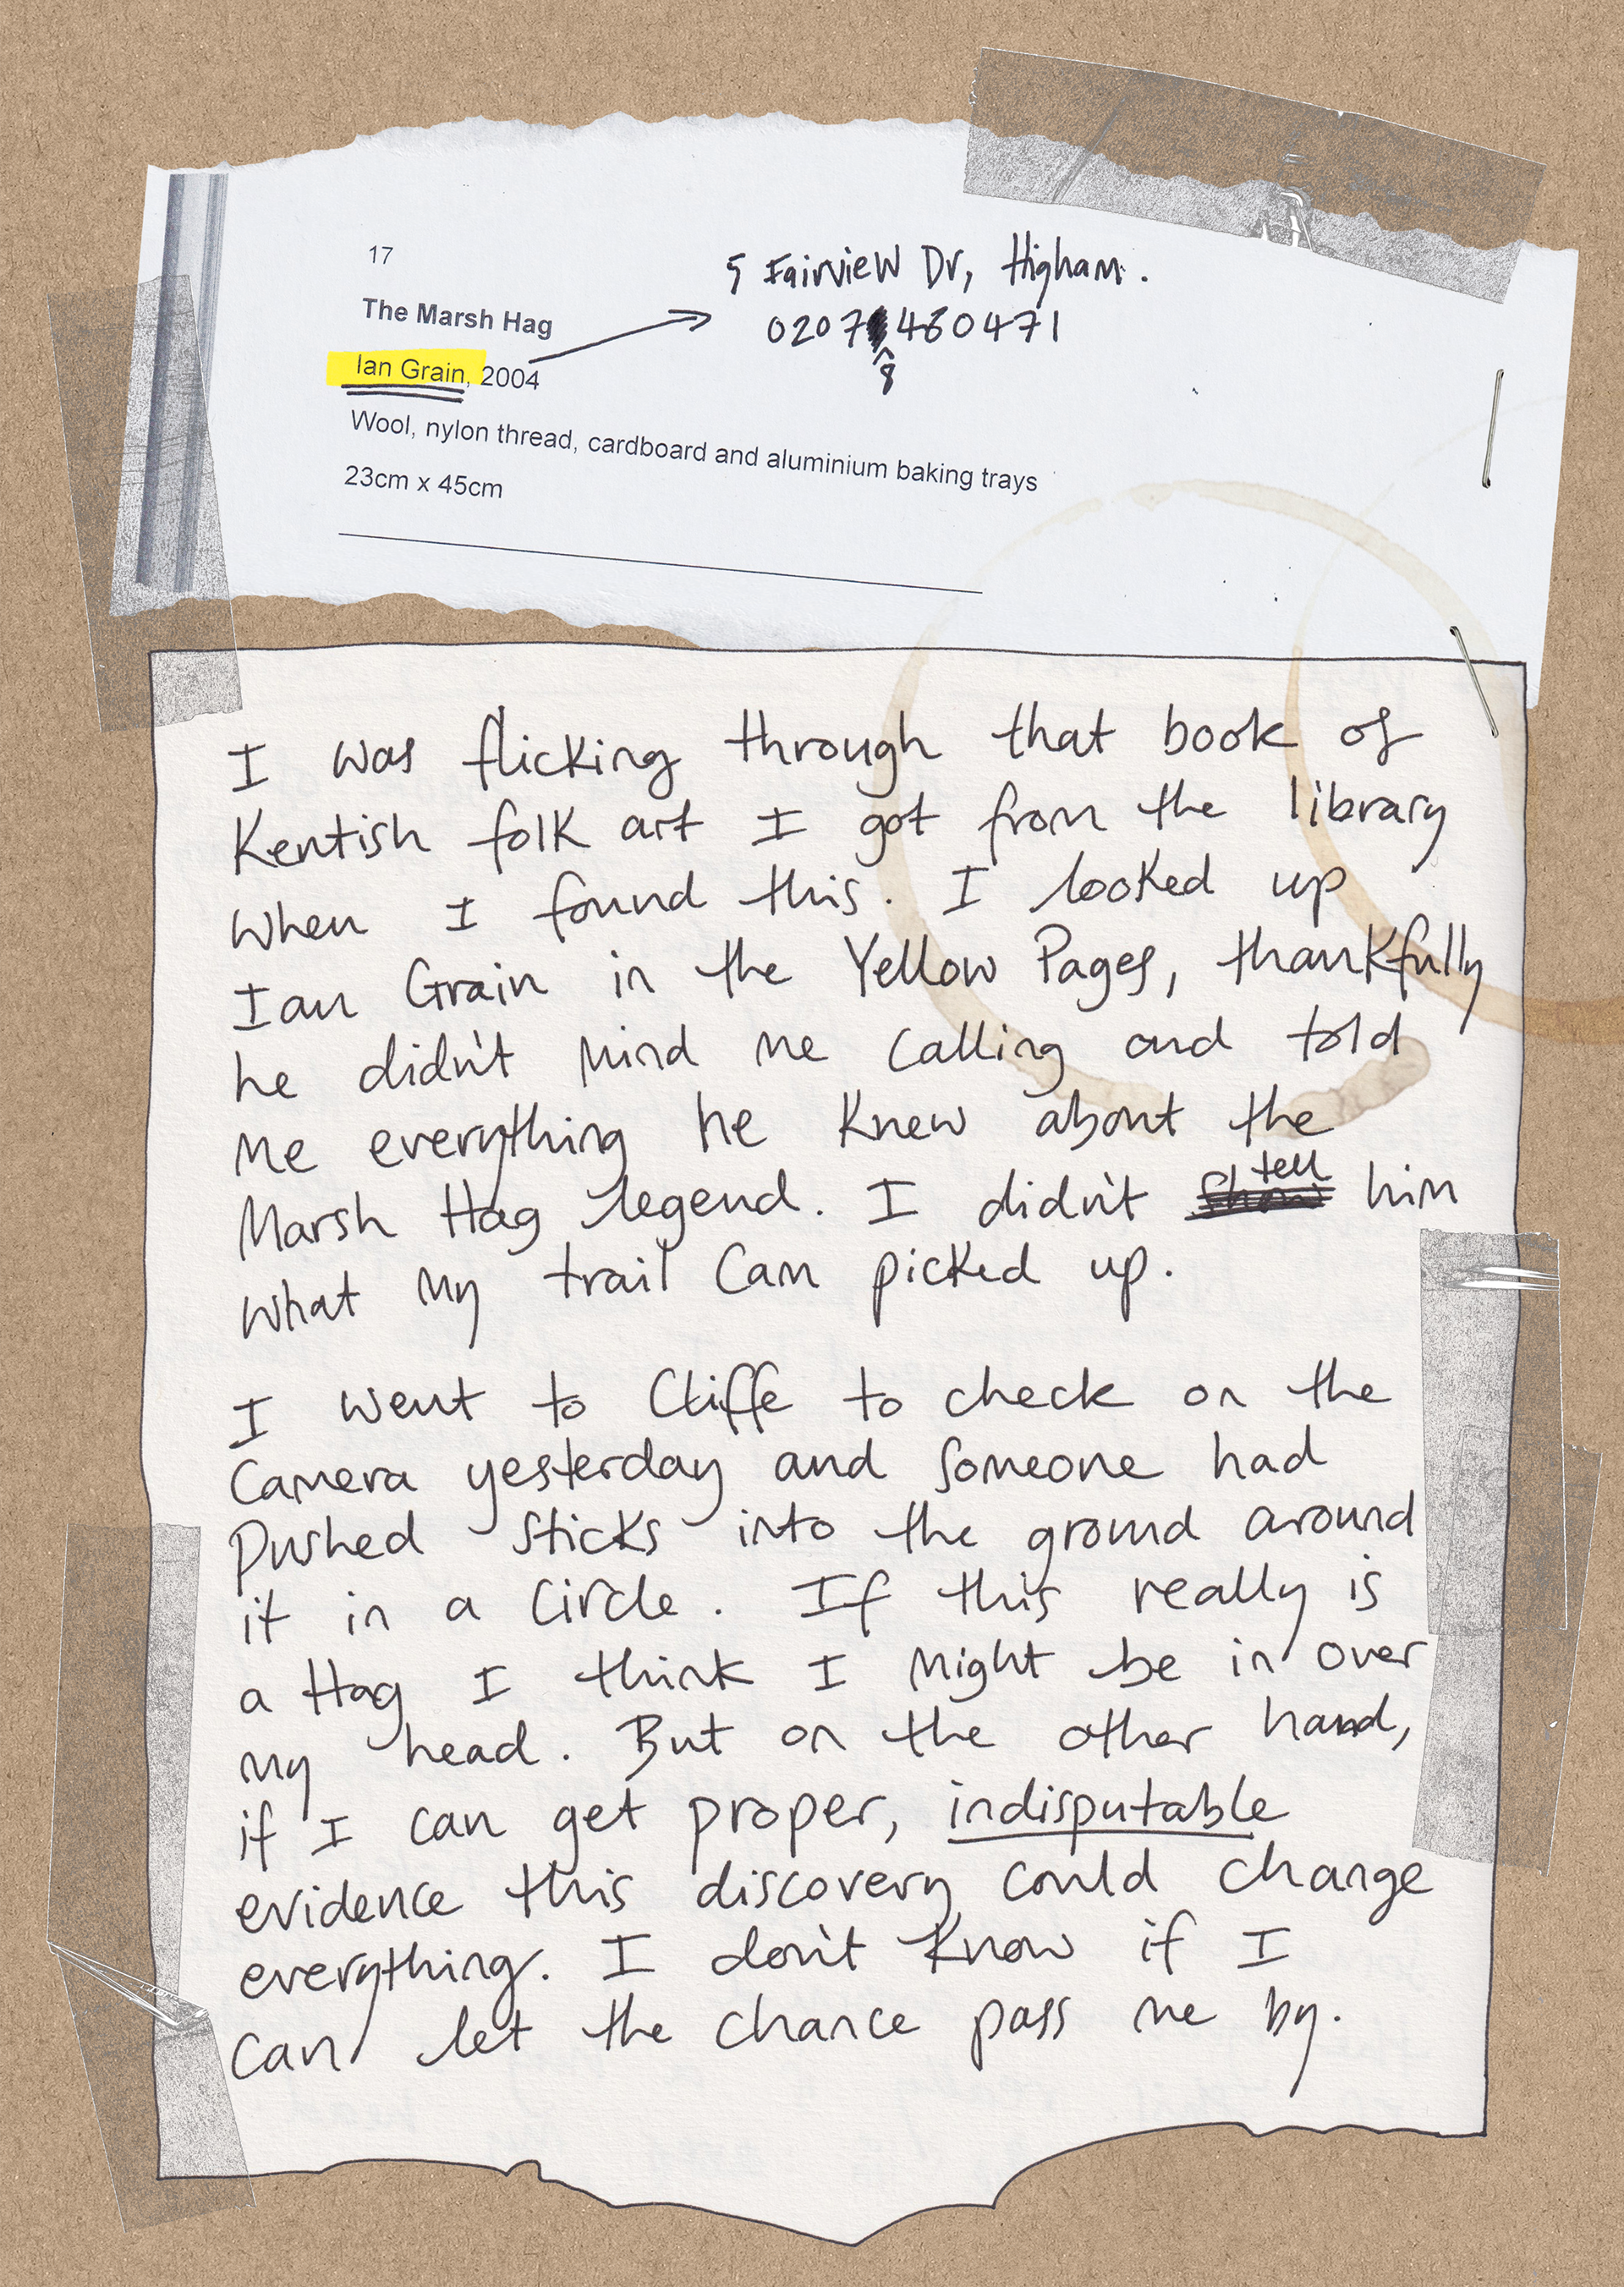 17
5 Fairview Dr, Higham.
The Marsh Hag
0207 460471
8
Ian Grain, 2004
Wool, nylon thread, cardboard and aluminium baking trays
23cm x 45cm
I was flicking through that book of
Kentish folk art I got from the library
when I found this. I looked up
Ian Grain in the Yellow Pages, thankfully
he didn't mind me calling and told
me everything he knew about the
Marsh Hag legend. I didn't tell him
what my trail cam picked up.
I went to Cliffe to check on the
camera yesterday and someone had
pushed sticks into the ground around
it in a circle. If this really is
a Hag I think I might be in over
my head. But on the other hand,
if I can get proper, indisputable
evidence this discovery could change
everything. I don't know if I
can let the chance pass me by.